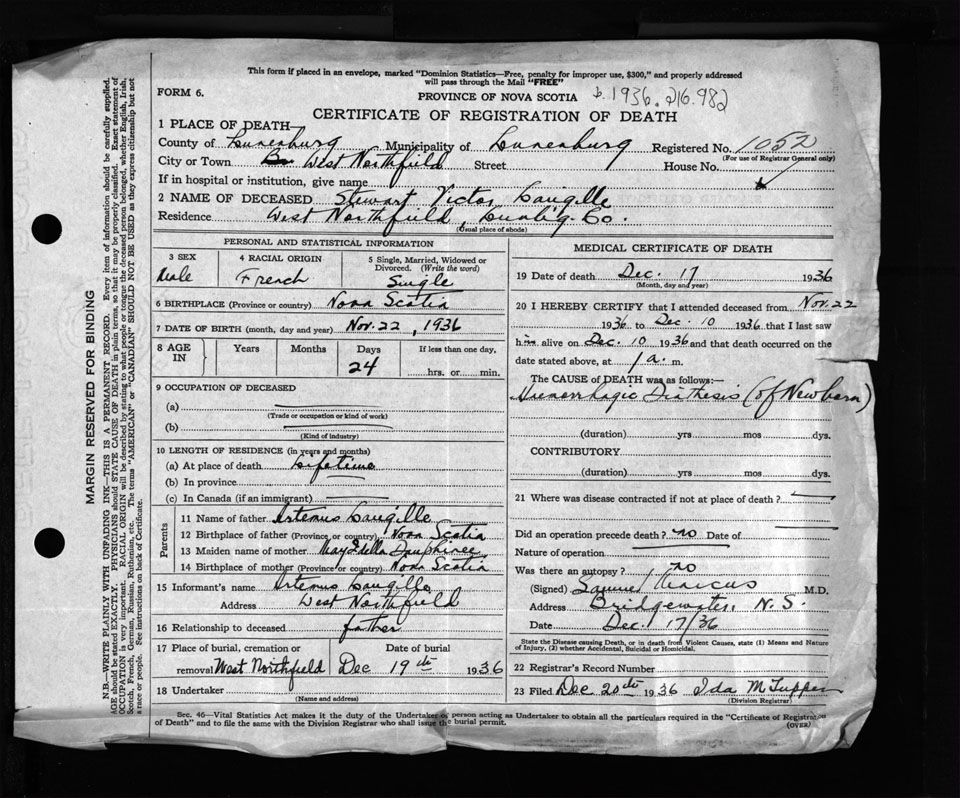 This form if placed in an envelope, marked "Dominion Statistics—Free, penalty for improper use, $300," and properly addressed
will pass through the Mail "FREE"
FORM 6.
PROVINCE OF NOVA SCOTIA 1936. 216.982
CERTIFICATE OF REGISTRATION OF DEATH
1 PLACE OF DEATH—
County of Lunenburg Municipality of Lunenburg Registered No. 1052
(For use of Registrar General only)
City or Town West Northfield Street House No.
If in hospital or institution, give name
2 NAME OF DECEASED Stewart Victor Langille
Residence West Northfield, Lunbg. Co.
(Usual place of abode)
PERSONAL AND STATISTICAL INFORMATION
3 SEX Male
4 RACIAL ORIGIN French
5 Single, Married, Widowed or
Divorced. (Write the word)
Single
6 BIRTHPLACE (Province or country) Nova Scotia
7 DATE OF BIRTH (month, day and year) Nov. 22, 1936
8 AGE IN Years Months Days 24 If less than one day,
hrs. or min.
9 OCCUPATION OF DECEASED
(a)
(Trade or occupation or kind of work)
(b)
(Kind of industry)
10 LENGTH OF RESIDENCE (in years and months)
(a) At place of death Lifetime
(b) In province
(c) In Canada (if an immigrant)
Parents
11 Name of father Artemus Langille
12 Birthplace of father (Province or country) Nova Scotia
13 Maiden name of mother May Idella Dauphinee
14 Birthplace of mother (Province or country) Nova Scotia
15 Informant's name Artemus Langille
Address West Northfield
16 Relationship to deceased father
17 Place of burial, cremation or
removal West Northfield
Date of burial
Dec 19th 1936
18 Undertaker
(Name and address)
MEDICAL CERTIFICATE OF DEATH
19 Date of death Dec. 17 1936
(Month, day and year)
20 I HEREBY CERTIFY that I attended deceased from Nov. 22
1936 to Dec. 10 1936 that I last saw
him alive on Dec. 10 1936 and that death occurred on the
date stated above, at 1 a. m.
The CAUSE OF DEATH was as follows:—
Haemorrhagic Diathesis (of Newborn)
(duration) yrs mos dys.
CONTRIBUTORY
(duration) yrs mos dys.
21 Where was disease contracted if not at place of death?
Did an operation precede death? no Date of
Nature of operation
Was there an autopsy? no
(Signed) Samuel Marcus M.D.
Address Bridgewater, N.S.
Date Dec. 17/36
State the Disease causing Death, or in death from Violent Causes, state (1) Means and Nature
of Injury, (2) whether Accidental, Suicidal or Homicidal.
22 Registrar's Record Number
23 Filed Dec 20th 1936 Ida M Tupper
(Division Registrar)
Sec. 46—Vital Statistics Act makes it the duty of the Undertaker or person acting as Undertaker to obtain all the particulars required in the "Certificate of Registration
of Death" and to file the same with the Division Registrar who shall issue the burial permit.
(OVER)
MARGIN RESERVED FOR BINDING
N.B.—WRITE PLAINLY WITH UNFADING INK—THIS IS A PERMANENT RECORD. Every item of information should be carefully supplied.
AGE should be stated EXACTLY. PHYSICIANS should STATE CAUSE OF DEATH in plain terms, so that it may be properly classified. Exact statement of
OCCUPATION is very important. RACIAL ORIGIN will be described by stating to what people or tongue the deceased person belonged, whether English, Irish,
Scotch, French, German, Russian, Ruthenian, etc. The terms "AMERICAN" or "CANADIAN" SHOULD NOT BE USED as they express citizenship but not
a race or people. See instructions on back of Certificate.